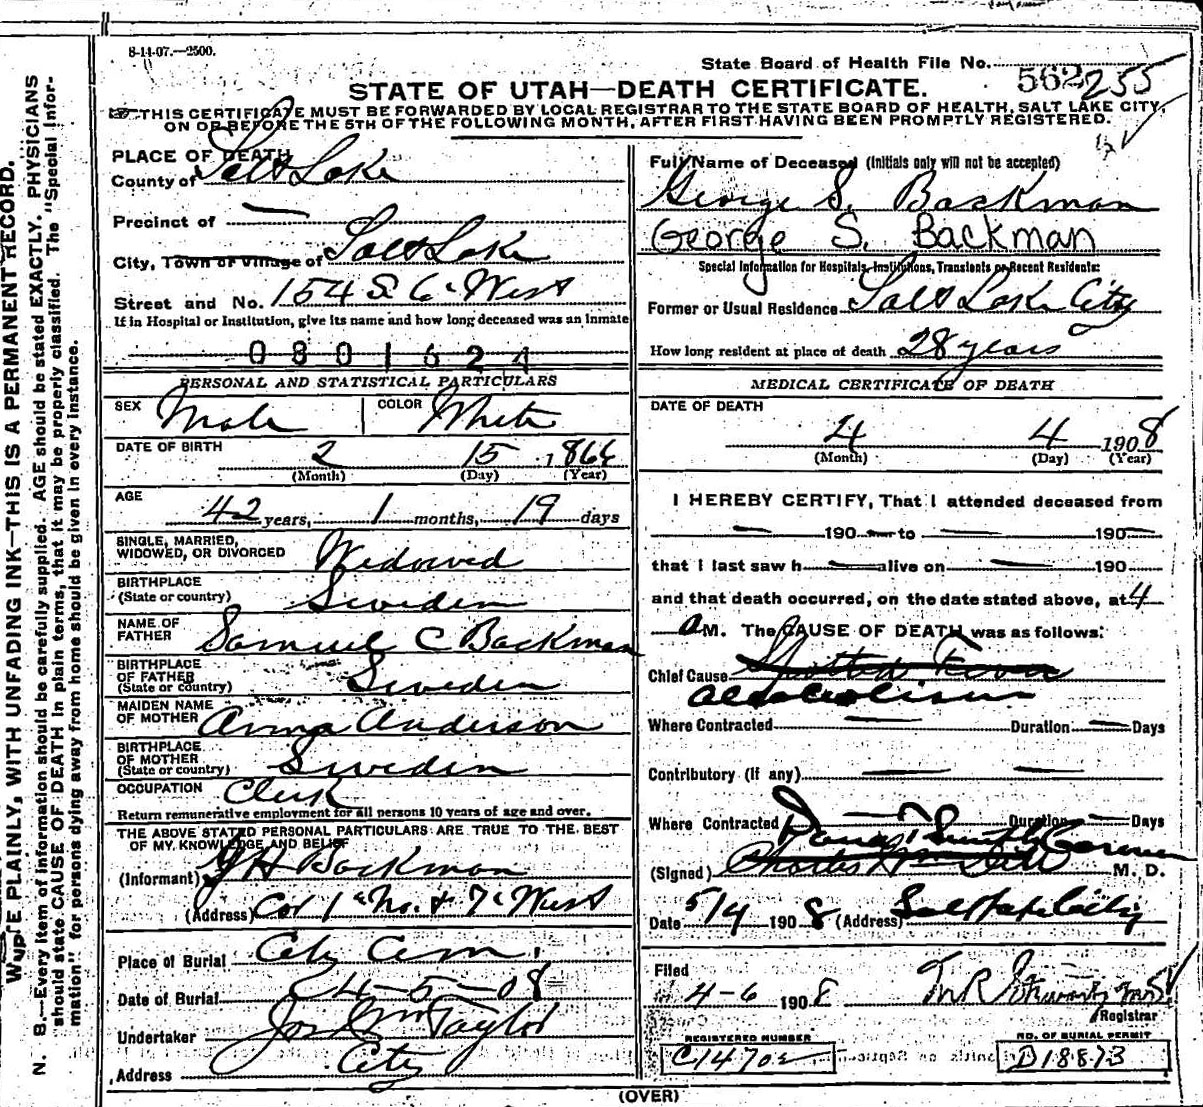 8-14-07.—2500.
State Board of Health File No. 562 255
STATE OF UTAH—DEATH CERTIFICATE.
THIS CERTIFICATE MUST BE FORWARDED BY LOCAL REGISTRAR TO THE STATE BOARD OF HEALTH, SALT LAKE CITY,
ON OR BEFORE THE 5TH OF THE FOLLOWING MONTH, AFTER FIRST HAVING BEEN PROMPTLY REGISTERED.
PLACE OF DEATH
County of Salt Lake
Precinct of —
City, Town or Village of Salt Lake
Street and No. 154 S 6 West
If in Hospital or Institution, give its name and how long deceased was an inmate
0801624
PERSONAL AND STATISTICAL PARTICULARS
SEX Male COLOR White
DATE OF BIRTH 2 15 1866
(Month) (Day) (Year)
AGE
42 years, 1 months, 19 days
SINGLE, MARRIED,
WIDOWED, OR DIVORCED Widowed
BIRTHPLACE
(State or country) Sweden
NAME OF
FATHER Samuel C Backman
BIRTHPLACE
OF FATHER
(State or country) Sweden
MAIDEN NAME
OF MOTHER Anna Anderson
BIRTHPLACE
OF MOTHER
(State or country) Sweden
OCCUPATION Clerk
Return remunerative employment for all persons 10 years of age and over.
THE ABOVE STATED PERSONAL PARTICULARS ARE TRUE TO THE BEST
OF MY KNOWLEDGE AND BELIEF
(Informant) G H Backman
(Address) Cor 1st No. & 7th West
Place of Burial City Cem.
Date of Burial 4-5-08
Undertaker Jos Wm Taylor
Address City
Full Name of Deceased (Initials only will not be accepted)
George S. Backman
George S. Backman
Special Information for Hospitals, Institutions, Transients or Recent Residents:
Former or Usual Residence Salt Lake City
How long resident at place of death 28 years
MEDICAL CERTIFICATE OF DEATH
DATE OF DEATH
4 4 1908
(Month) (Day) (Year)
I HEREBY CERTIFY, That I attended deceased from
— 190— to — 190—
that I last saw h— alive on — 190—
and that death occurred, on the date stated above, at 4
a M. The CAUSE OF DEATH was as follows:
Chief Cause Spotted Fever
alcoholism
Where Contracted — Duration — Days
Contributory (if any) — —
Where Contracted Duration — Days
Dana T Smith Coroner
(Signed) Charles M. D.
Date 5/4 1908 (Address) Salt Lake City
Filed
4-6 1908
Registrar
REGISTERED NUMBER
C1470
NO. OF BURIAL PERMIT
D18873
(OVER)
WRITE PLAINLY, WITH UNFADING INK—THIS IS A PERMANENT RECORD.
N. B.—Every item of information should be carefully supplied. AGE should be stated EXACTLY. PHYSICIANS
should state CAUSE OF DEATH in plain terms, that it may be properly classified. The "Special Infor-
mation" for persons dying away from home should be given in every instance.